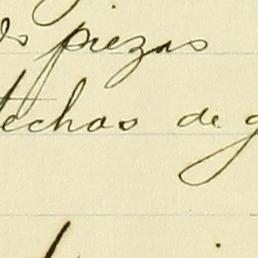 piezas
techos de